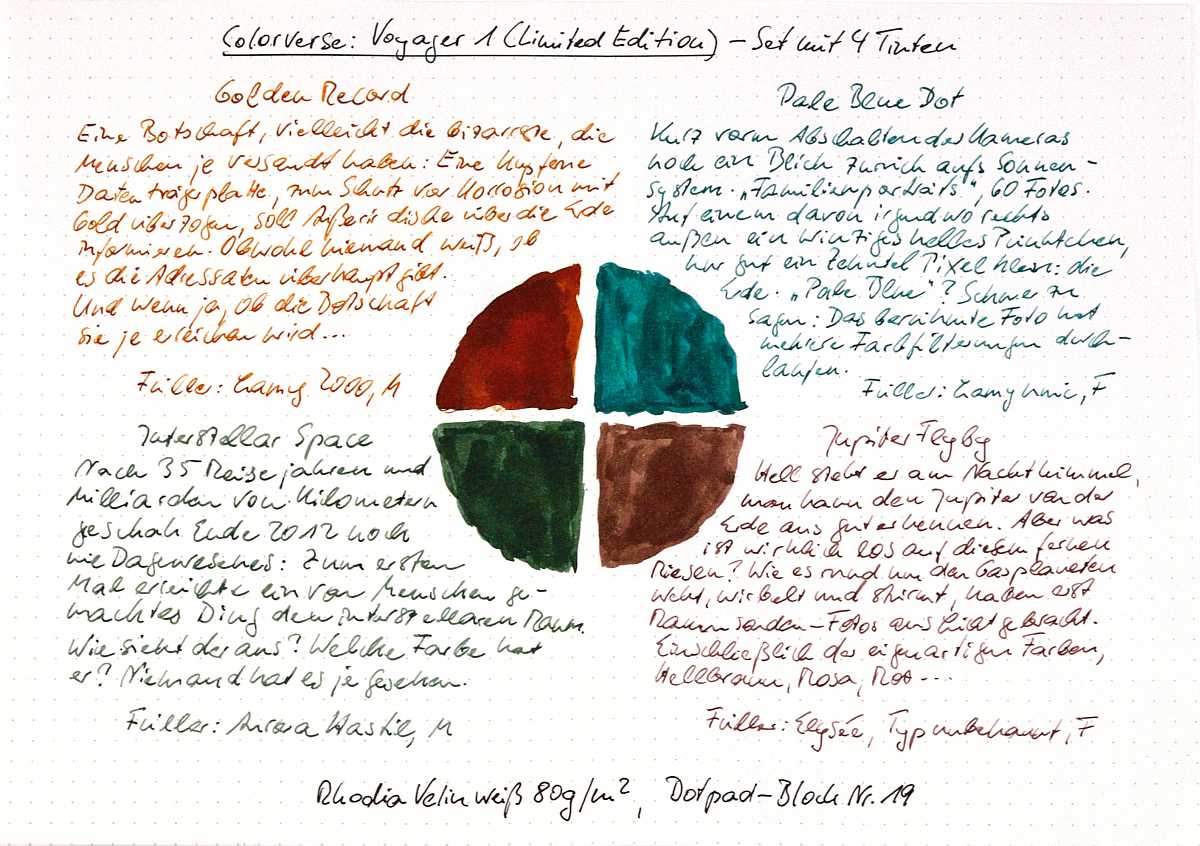 Colorverse: Voyager 1 (Limited Edition) – Set mit 4 Tinten
Golden Record
Eine Botschaft, vielleicht die bizarrste, die
Menschen je versandt haben: Eine kupferne
Datenträgerplatte, zum Schutz vor Korrosion mit
Gold überzogen, soll Außerirdische über die Erde
informieren. Obwohl niemand weiß, ob
es die Adressaten überhaupt gibt.
Und wenn ja, ob die Botschaft
sie je erreichen wird...
Füller: Lamy 2000, M
Pale Blue Dot
Kurz vorm Abschalten der Kameras
noch ein Blick zurück aufs Sonnen-
system. „Familienportraits“, 60 Fotos.
Auf einem davon irgendwo rechts
außen ein winziges helles Pünktchen,
nur gut ein Zehntel Pixel klein: die
Erde. „Pale Blue“? Schwer zu
sagen: Das berühmte Foto hat
mehrere Farbfilterungen durch-
laufen.
Füller: Lamy Unic, F
Interstellar Space
Nach 35 Reisejahren und
Milliarden von Kilometern
geschah Ende 2012 noch
nie Dagewesenes: Zum ersten
Mal erreichte ein von Menschen ge-
machtes Ding den interstellaren Raum.
Wie sieht der aus? Welche Farbe hat
er? Niemand hat es je gesehen.
Füller: Aurora Hastil, M
Jupiter Flyby
Hell steht er am Nachthimmel,
man kann den Jupiter von der
Erde aus gut erkennen. Aber was
ist wirklich los auf diesem fernen
Riesen? Wie es rund um den Gasplaneten
weht, wirbelt und stürmt, haben erst
Raumsonden-Fotos ans Licht gebracht.
Einschließlich der eigenartigen Farben,
Hellbraun, Rosa, Rot...
Füller: Elysée, Typ unbekannt, F
Rhodia Velin weiß 80g/m², Dotpad-Block Nr. 19